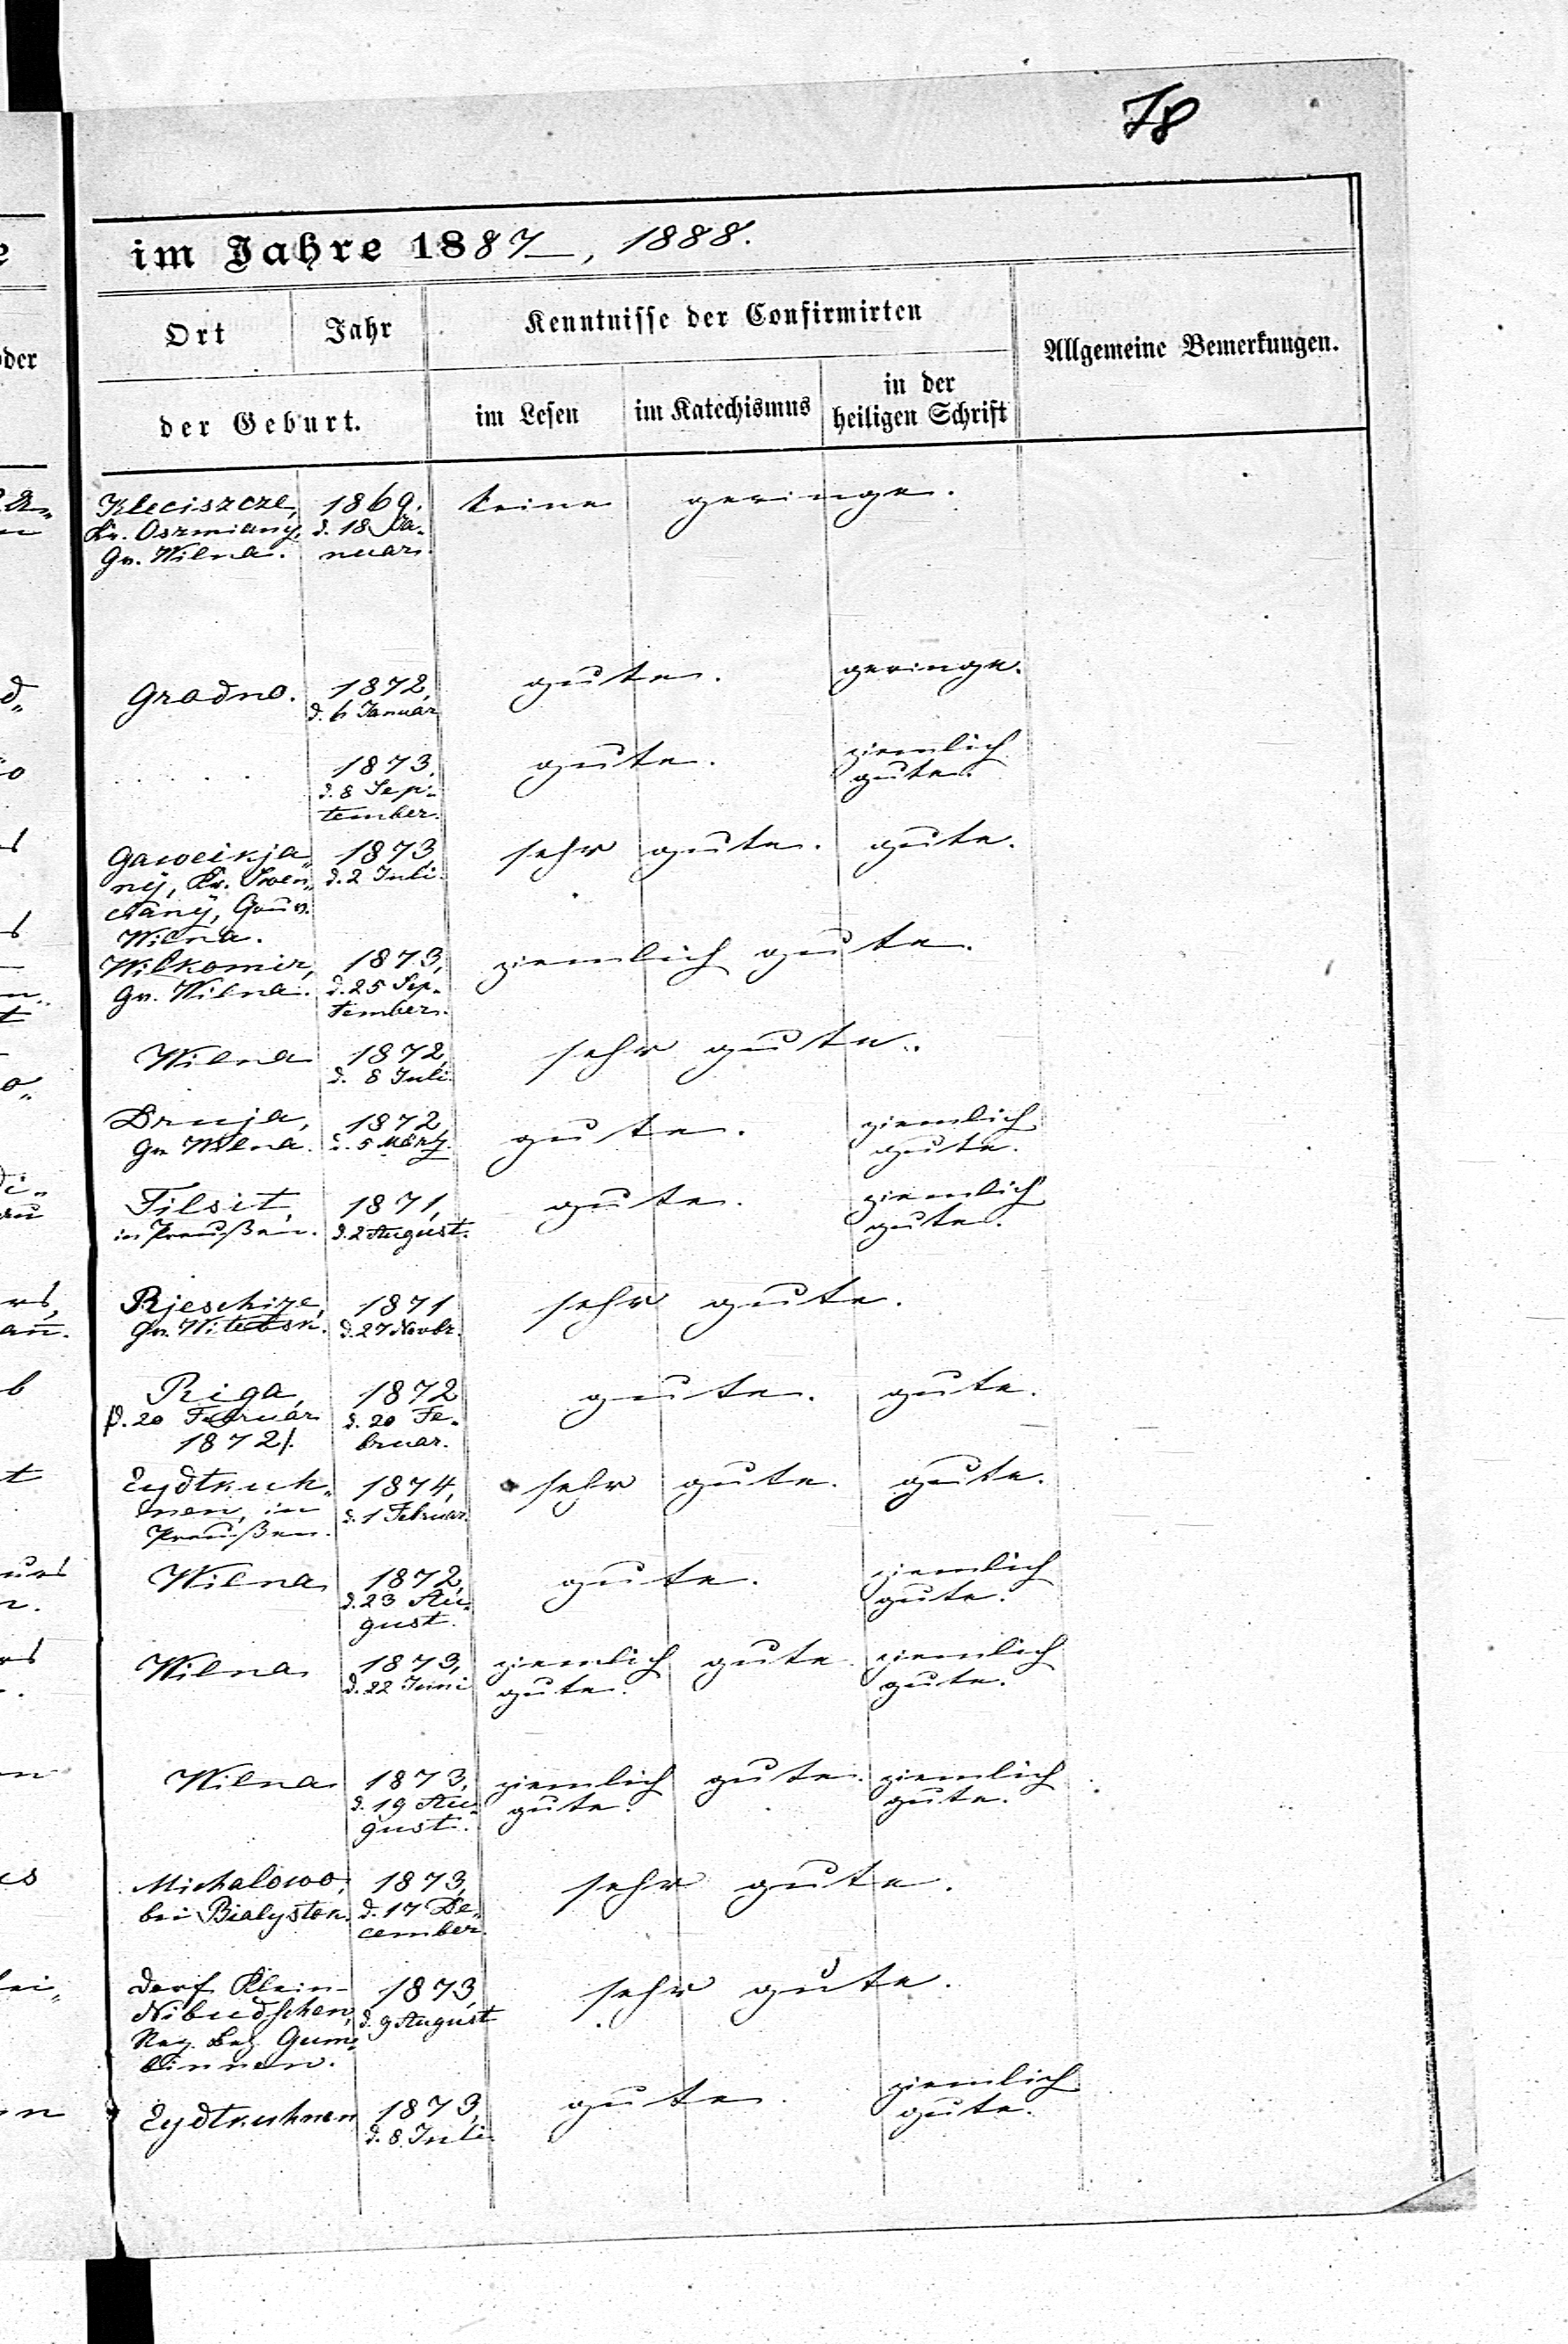 78
im Jahre 1887, 1888.
Ort Jahr Kenntnisse der Confirmirten Allgemeine Bemerkungen.
der Geburt. im Lesen im Katechismus in der heiligen Schrift
Kleciszcze, 1869. keine geringe.
Kr. Oszmiany, d. 18 Ja-
Gv. Wilna. nuar.
Grodno. 1872, gute. geringe.
d. 6 Januar
1873, gute. ziemlich
d. 8 Sep- gute.
tember.
Gaweikja- 1873, sehr gute. gute.
nÿ, Kr. Swen- d. 2 Juli.
cianÿ, Gouv.
Wilna.
Wilkomir, 1873, ziemlich gute.
Gv. Wilna. d. 25 Sep-
tember.
Wilna 1872, sehr gute.
d. 8 Juli.
Druja, 1872, gute. ziemlich
Gv. Wilna. d. 5 März. gute.
Tilsit, 1871, gute. ziemlich
in Preußen. d. 2 August. gute.
Rjeschize, 1871 sehr gute.
Gv. Witebsk. d. 27 Novbr.
Riga, 1872 gute. gute.
d. 20 Februar d. 20 Fe-
1872. bruar.
Eydtkuh- 1874, sehr gute. gute.
nen, in d. 1 Februar.
Preußen.
Wilna 1872, gute. ziemlich
d. 23 Au- gute.
gust.
Wilna 1873, ziemlich gute ziemlich
d. 22 Juni gute. gute.
Wilna 1873, ziemlich gute. ziemlich
d. 19 Au- gute. gute.
gust.
Michalowo, 1873, sehr gute.
bei Bialystok. d. 17 De-
cember.
Dorf Klein- 1873, sehr gute.
Nibudschen, d. 9 August
Reg. Bez. Gum-
binnen.
Eydtkuhnen 1873, gute. ziemlich
d. 8 Juli. gute.